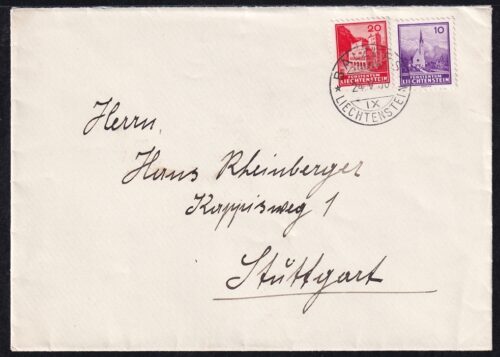 20
FÜRSTENTUM
LIECHTENSTEIN
10
FÜRSTENTUM
LIECHTENSTEIN
IX
LIECHTENSTEIN
Herrn,
Hans Rheinberger
Kappisweg 1
Stuttgart